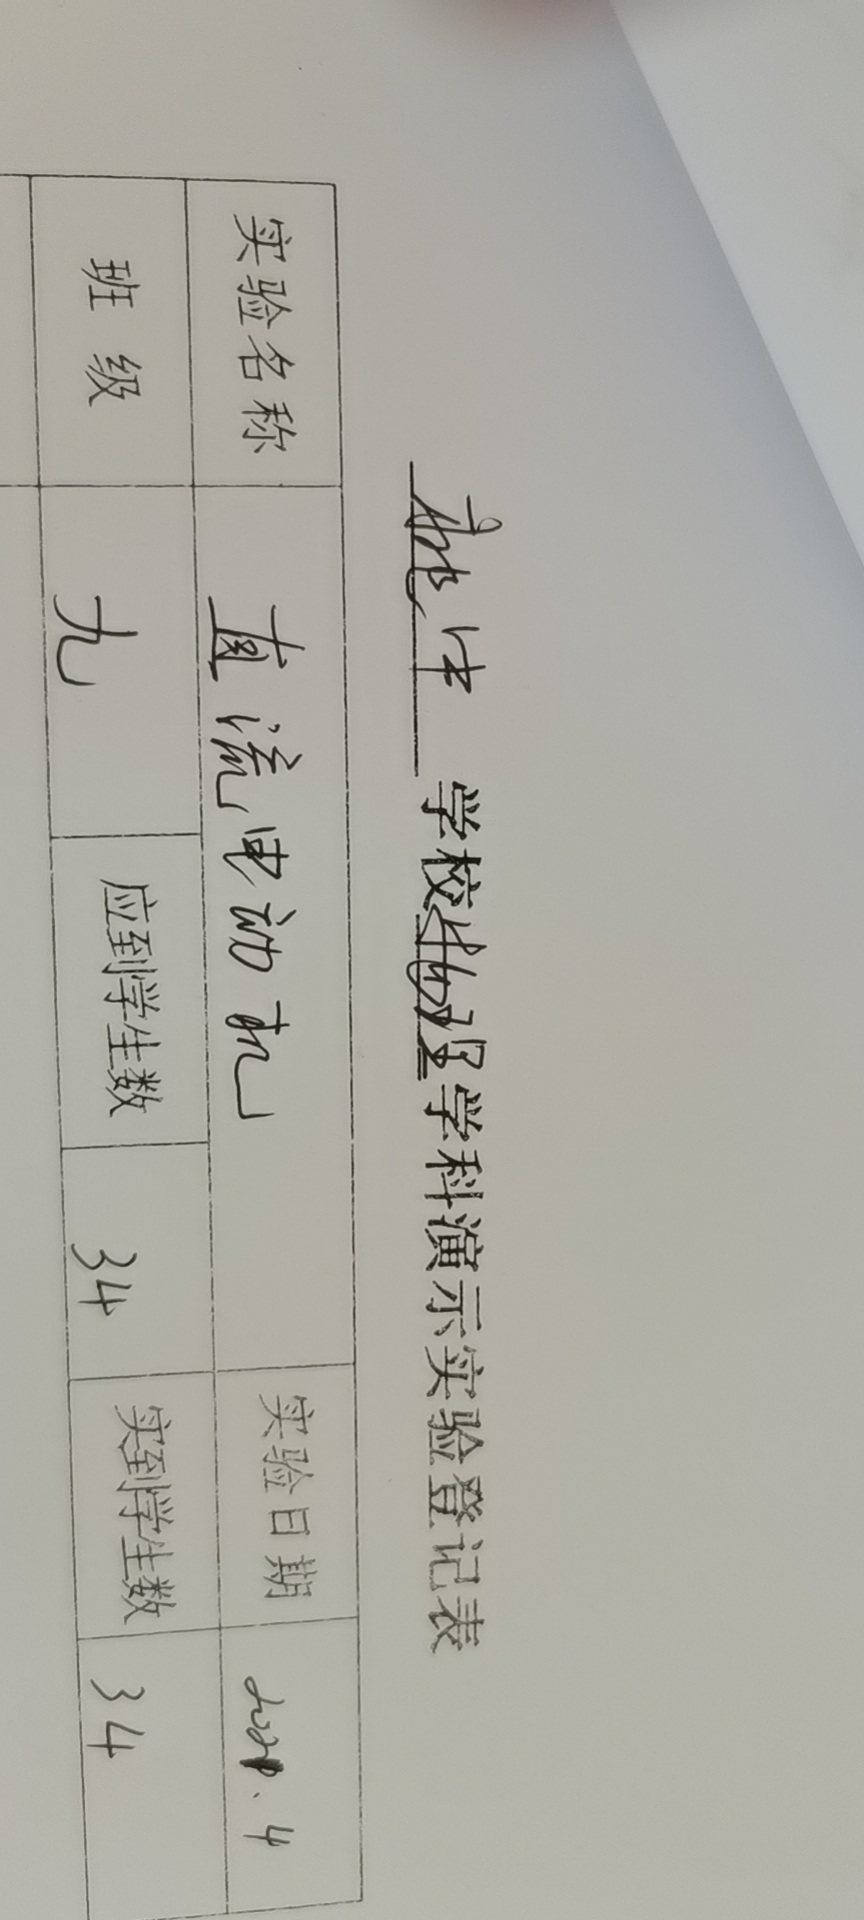 中学校物理学科演示实验登记表
实验名称 直流电动机 实验日期
班级 九 应到学生数 34 实到学生数 34